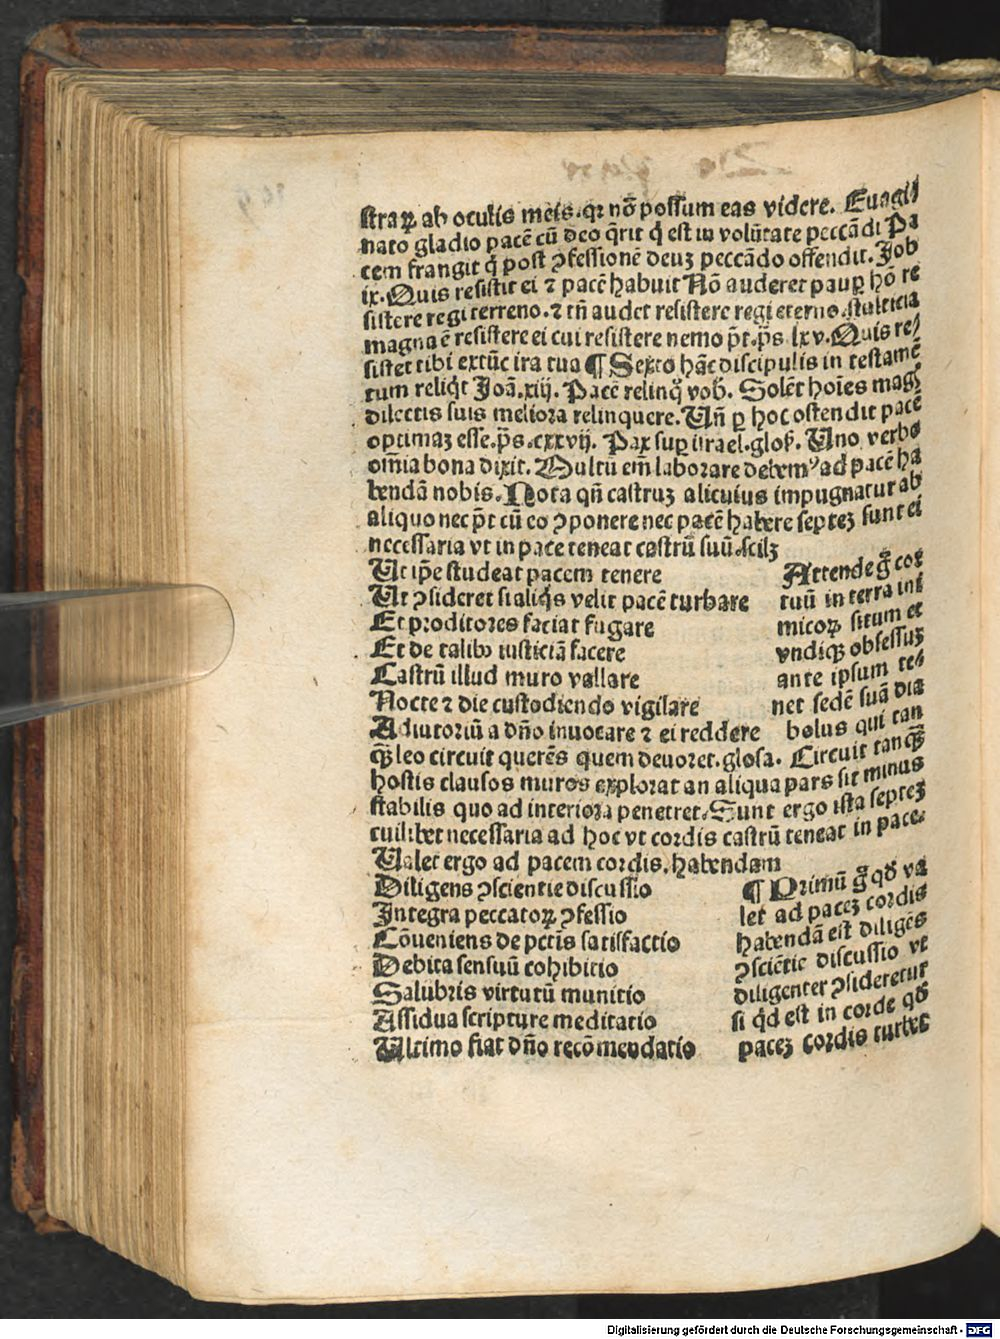 straꝝ ab oculis meis. qꝛ nō possum eas videre. Euagi⸗
nato gladio pacē cū deo q̄rit q̇ est in volūtate peccādi Pa
cem frangit q̇ post ꝯfessionē deuꝫ peccādo offendit. Job
ix. Quis resistit ei ⁊ pacē habuit Nō auderet paup̲ hō re
sistere regi terreno. ⁊ tn̄ audet resistere regi eterno. stulticia
magna ē resistere ei cui resistere nemo p̄t. p̄s lxv. Quis re⸗
sistet tibi extūc ira tua ¶ Sexto hāc discipulis in testamē
tum reliq̇t Joā. xiij. Pacē relinq̊ vob̄. Solēt hoīes mag̣
dilectis suis meliora relinquere. Un̄ ꝑ hoc ostendit pacē
optimaꝫ esse. p̄s. cxxvij. Pax suꝑ israel. glos̄. Uno verbo
om̄ia bona dixit. Multū em̄ laborare debemꝰ ad pacē ha
bendā nobis. Nota qn̄ castruꝫ alicuius impugnatur ab
aliquo nec p̄t cū eo ꝯponere nec pacē habere septeꝫ sunt ei
necessaria vt in pace teneat castrū suū. scilꝫ
Ut ip̄e studeat pacem tenere Attende g̊ cor
Ut ꝯsideret si aliq̇s velit pacē turbare tuū in terra ini
Et proditores faciat fugare micoꝝ situm et
Et de talibꝰ iusticiā facere vndiqꝫ obsessuꝫ
Castrū illud muro vallare ante ipsum te⸗
Nocte ⁊ die custodiendo vigilare net sedē suā dia
Adiutoriū a dn̄o inuocare ⁊ ei reddere bolus qui tan
q̄ꝫ leo circuit querēs quem deuoret. glosa. Circuit tanq̄ꝫ
hostis clausos muros explorat an aliqua pars sit minus
stabilis quo ad interiora penetret. Sunt ergo ista septeꝫ
cuilibet necessaria ad hoc vt cordis castrū teneat in pace.
Ualet ergo ad pacem cordis. habendam
Diligens ꝯscientie discussio ¶ Primū g̊ qd̄ va
Integra peccatoꝝ ꝯfessio let ad paceꝫ cordis
Cōueniens de pctīs satisfactio habendā est diligēs
Debita sensuū cohibitio ꝯsciētie discussio vt
Salubris virtutū munitio diligenter ꝯsideretur
Assidua scripture meditatio si q̇d est in corde qd̄
Ultimo fiat dn̄o recōmendatio paceꝫ cordis turbet
Digitalisierung gefördert durch die Deutsche Forschungsgemeinschaft - DFG